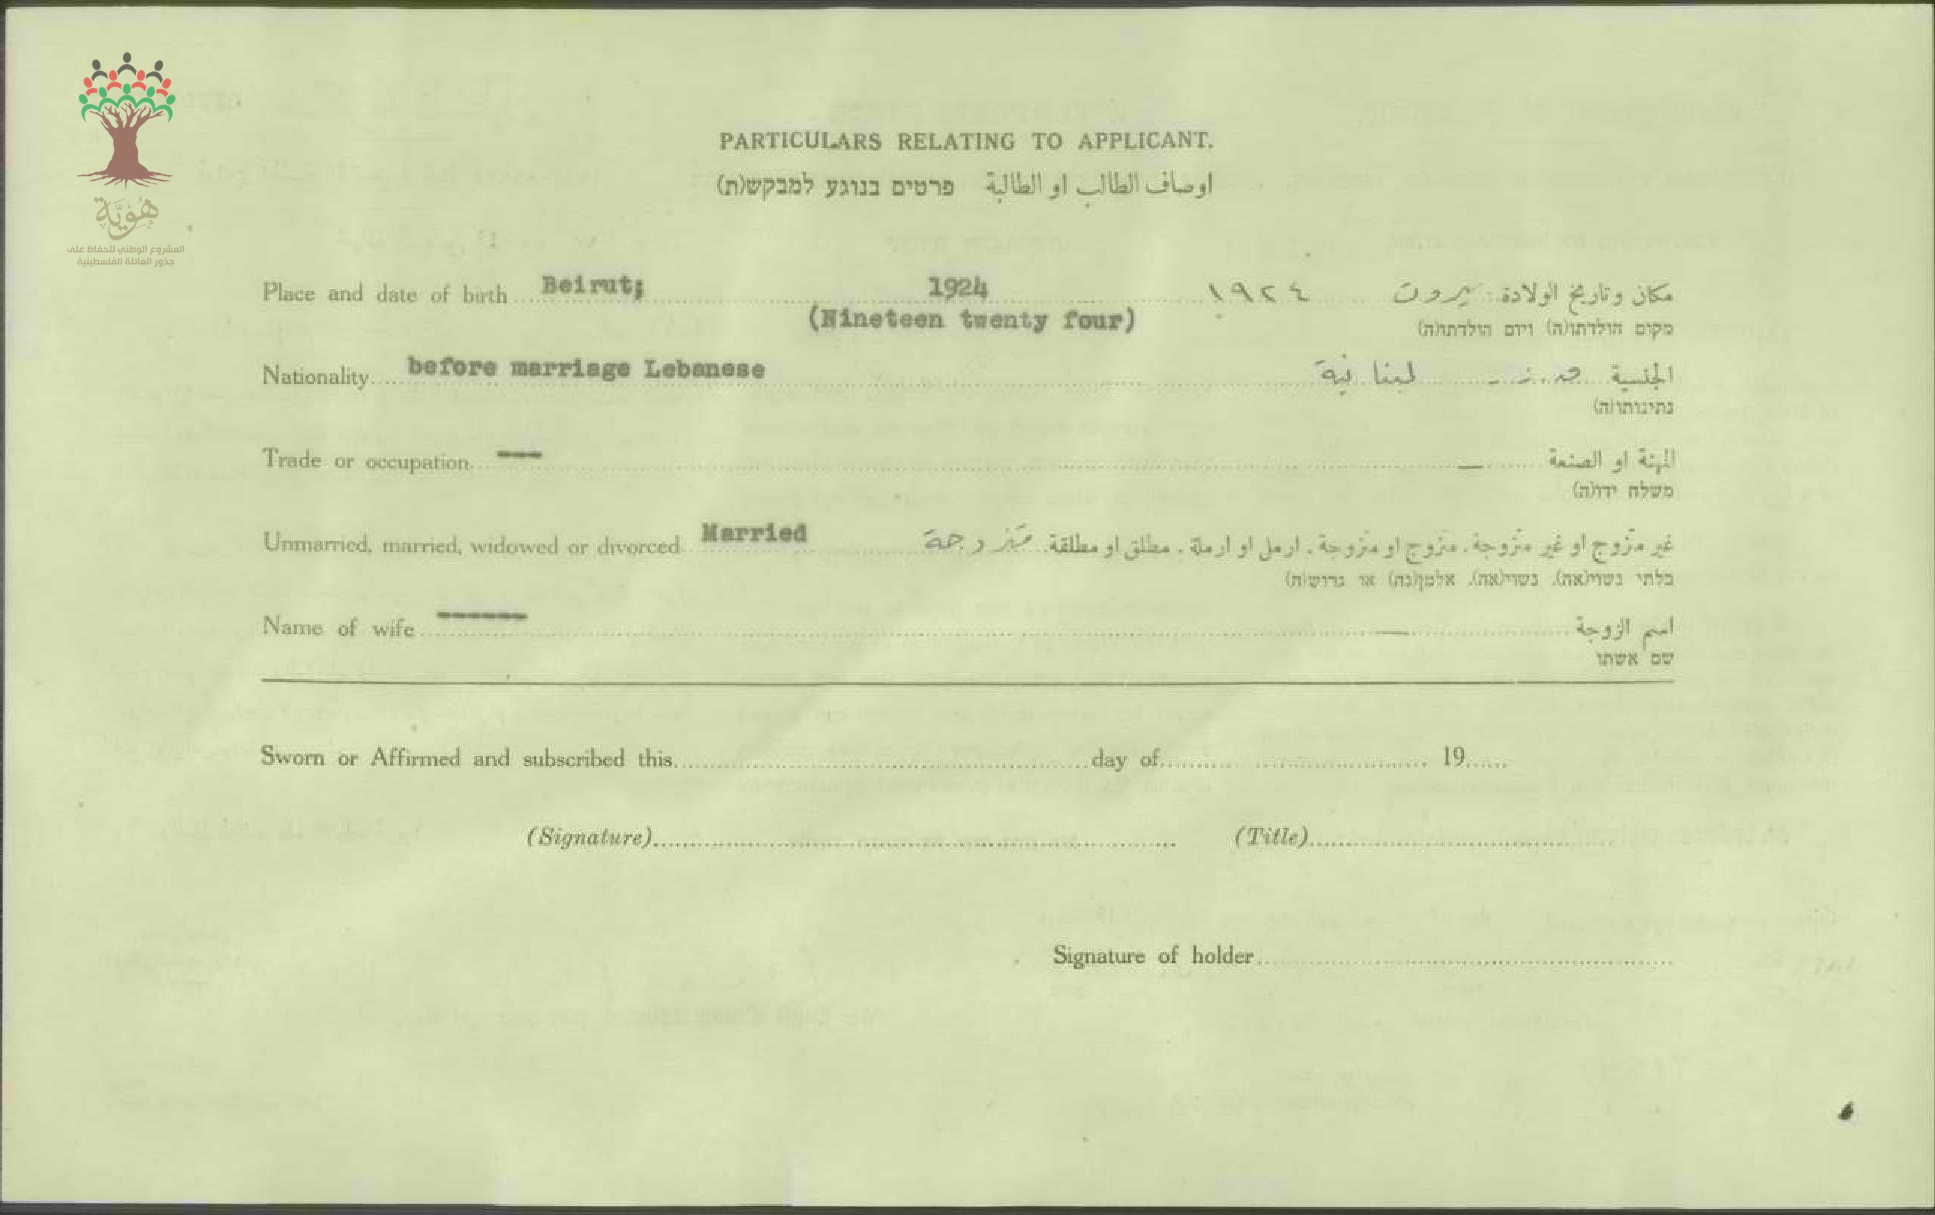 هُوِيَّة
المشروع الوطني للحفاظ على
جذور العائلة الفلسطينية
PARTICULARS RELATING TO APPLICANT.
اوصاف الطالب او الطالبة פרטים בנוגע למבקש(ת)
Place and date of birth Beirut; 1924 ١٩٢٤ بيروت مكان وتاريخ الولادة
(Nineteen twenty four) מקום הולדתו(ה) ויום הולדתו(ה)
Nationality before marriage Lebanese لبنانية الجنسية
נתינותו(ה)
Trade or occupation --- — المهنة او الصنعة
משלח ידו(ה)
Unmarried, married, widowed or divorced Married متزوجة غير متزوج او غير متزوجة، متزوج او متزوجة، ارمل او ارملة، مطلق او مطلقة
בלתי נשוי(אה), נשוי(אה), אלמן(נה) או גרוש(ה)
Name of wife ------ — اسم الزوجة
שם אשתו
Sworn or Affirmed and subscribed this day of 19
(Signature) (Title)
Signature of holder